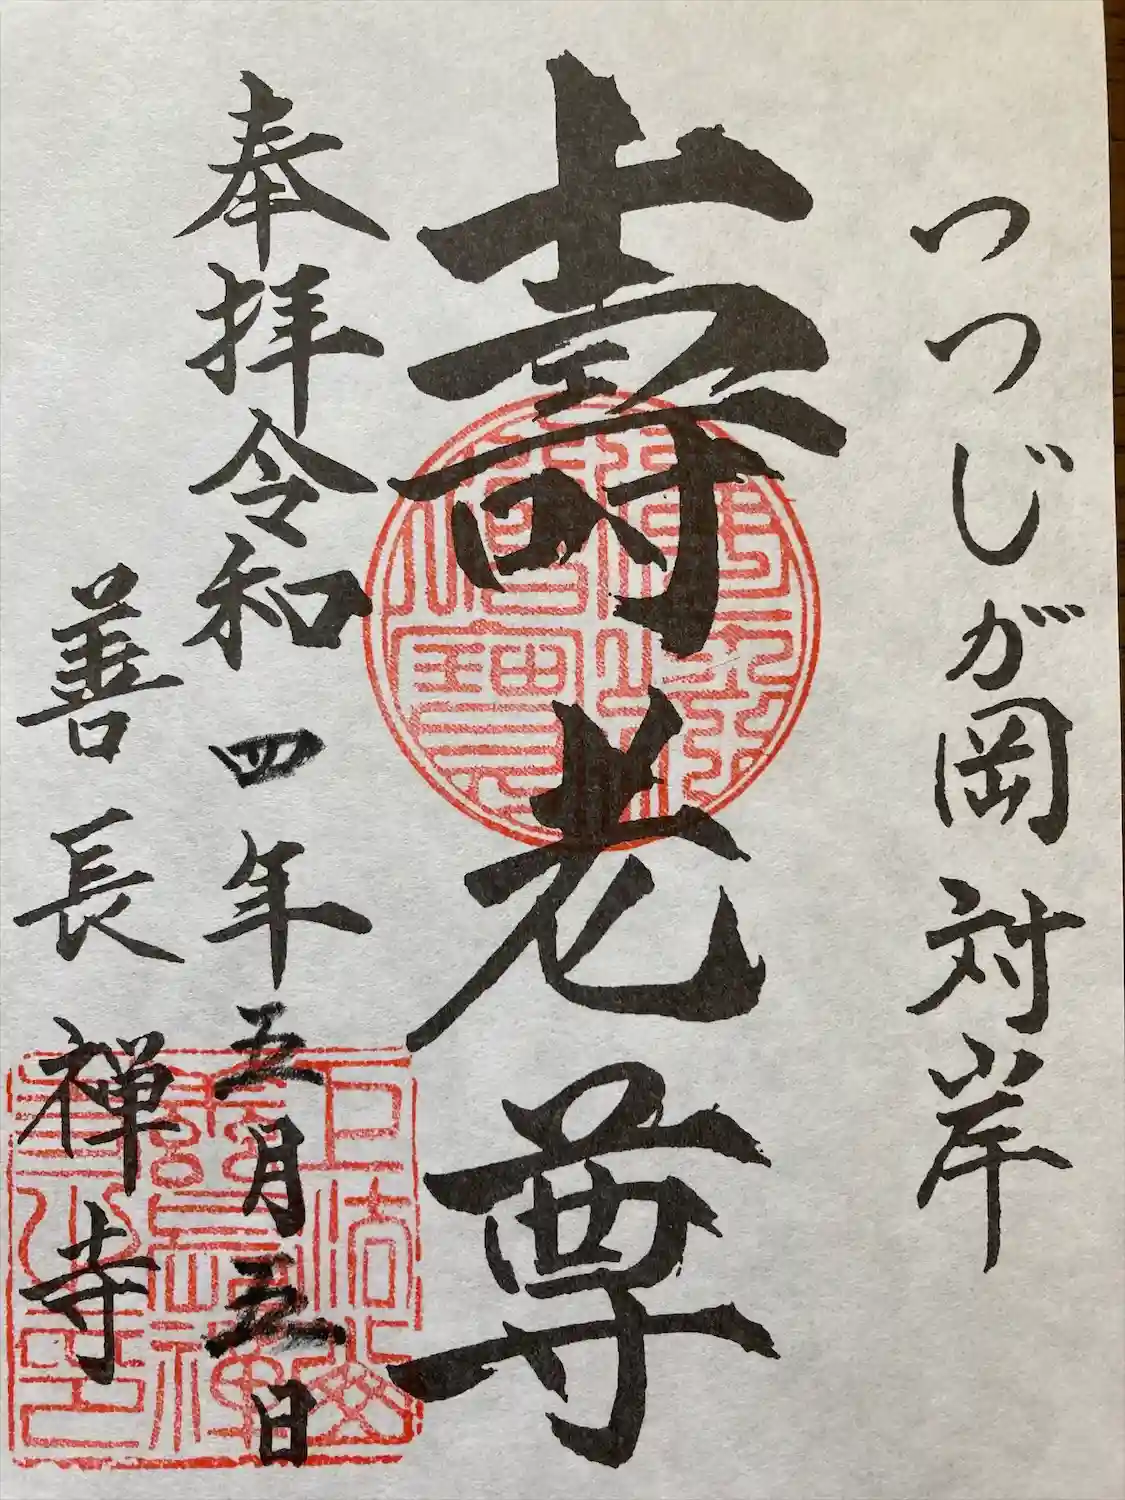 つつじが岡対岸
壽老尊
奉拝令和四年五月五日
善長禅寺